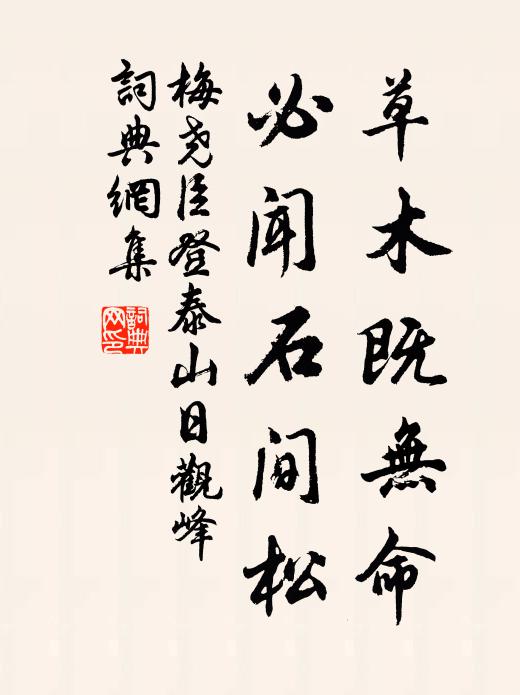 草木既無命
必闻石间松
梅尧臣登泰山日觀峰
詞典網集
詞典网印